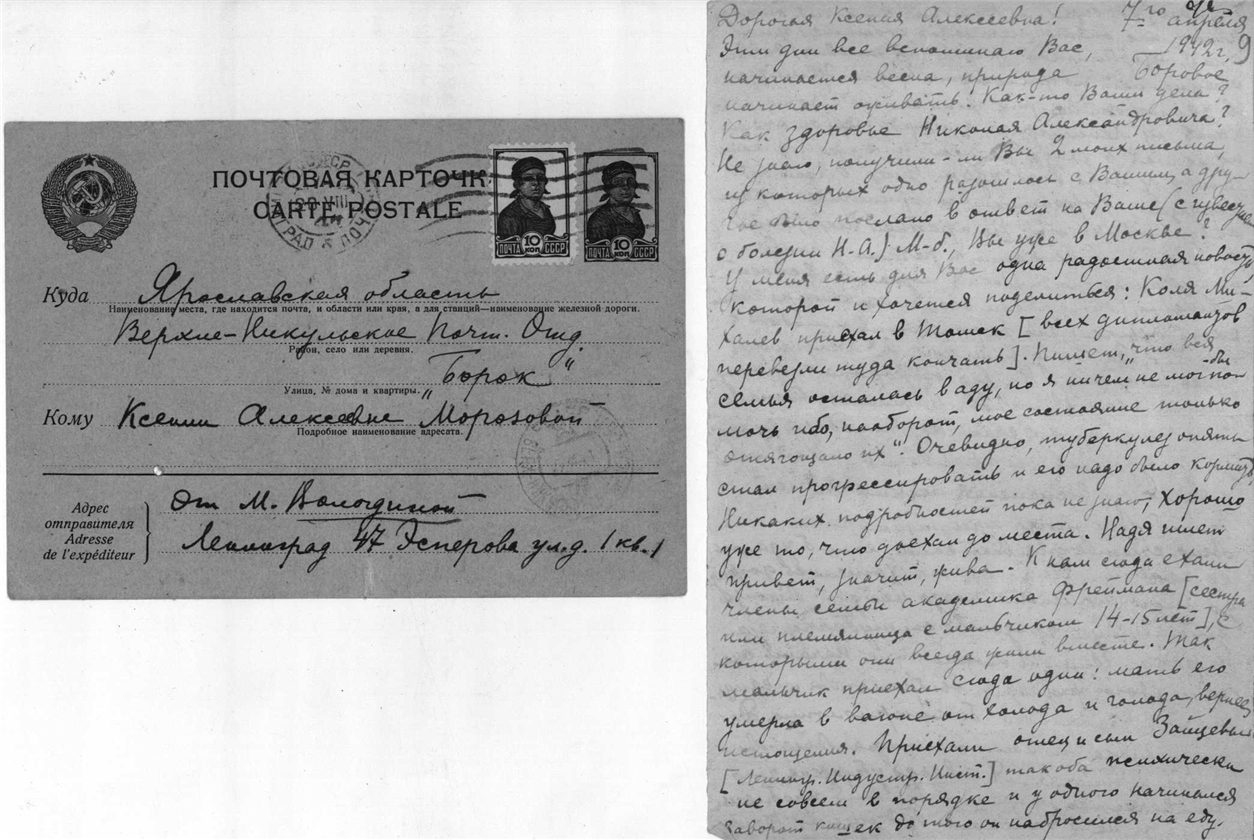 ПОЧТОВАЯ КАРТОЧКА
CARTE POSTALE
10 КОП.
ПОЧТА СССР
10 КОП.
ПОЧТА СССР
Куда Ярославская область
Наименование места, где находится почта, и области или края, а для станций—наименование железной дороги.
Верхне-Никульское Почт. Отд.
Район, село или деревня.
"Борок"
Улица, № дома и квартиры.
Кому Ксении Алексеевне Морозовой
Подробное наименование адресата.
Адрес отправителя
Adresse de l'expéditeur
от М. Володиной
Ленинград 47 Эсперова ул. д. 1 кв. 1
Дорогая Ксения Алексеевна! 7го апреля
Эти дни все вспоминаю Вас, 1942 г. 9
начинается весна, природа Боровое
начинает оживать. Как-то Ваши дела?
Как здоровье Николая Александровича?
Не знаю, получили-ли Вы 2 моих письма,
из которых одно разошлось с Вашим, а дру-
гое было послано в ответ на Ваше (с известием
о болезни Н.А.) М-б., Вы уже в Москве?
У меня есть для Вас одна радостная новость
которой и хочется поделиться: Коля Ми-
халев приехал в Томск [всех дипломантов
перевезли туда кончать]. Пишет, "что вся
семья осталась в аду, но я ничем не мог-бы по-
мочь ибо, наоборот, мое состояние только
отягощало их". Очевидно, туберкулез опять
стал прогрессировать и его надо было кормить.
Никаких подробностей пока не знаю, хорошо
уже то, что доехал до места. Надя шлет
привет, значит, жива. К нам сюда ехали
члены семьи академика Фреймана [сестра
или племянница с мальчиком 14-15 лет], с
которыми они всегда жили вместе. Так
мальчик приехал сюда один: мать его
умерла в вагоне от холода и голода, вернее
истощения. Приехали отец и сын Зайцевы
[Ленингр. Индустр. Инст.] так оба психически
не совсем в порядке и у одного начинался
заворот кишек до того он набросился на еду.